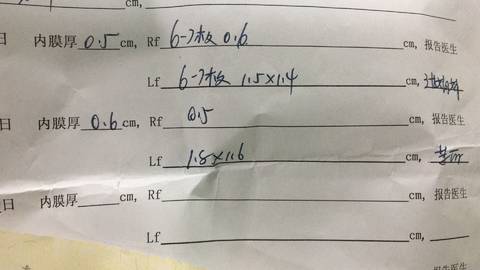 cm,
日 内膜厚 0.5 cm, Rf 6-7枚 0.6 cm, 报告医生
Lf 6-7枚 1.5×1.4 cm,
日 内膜厚 0.6 cm, Rf 0.5 cm, 报告医生
Lf 1.8×1.6 cm,
日 内膜厚 cm, Rf cm, 报告医生
Lf cm,
报告医生